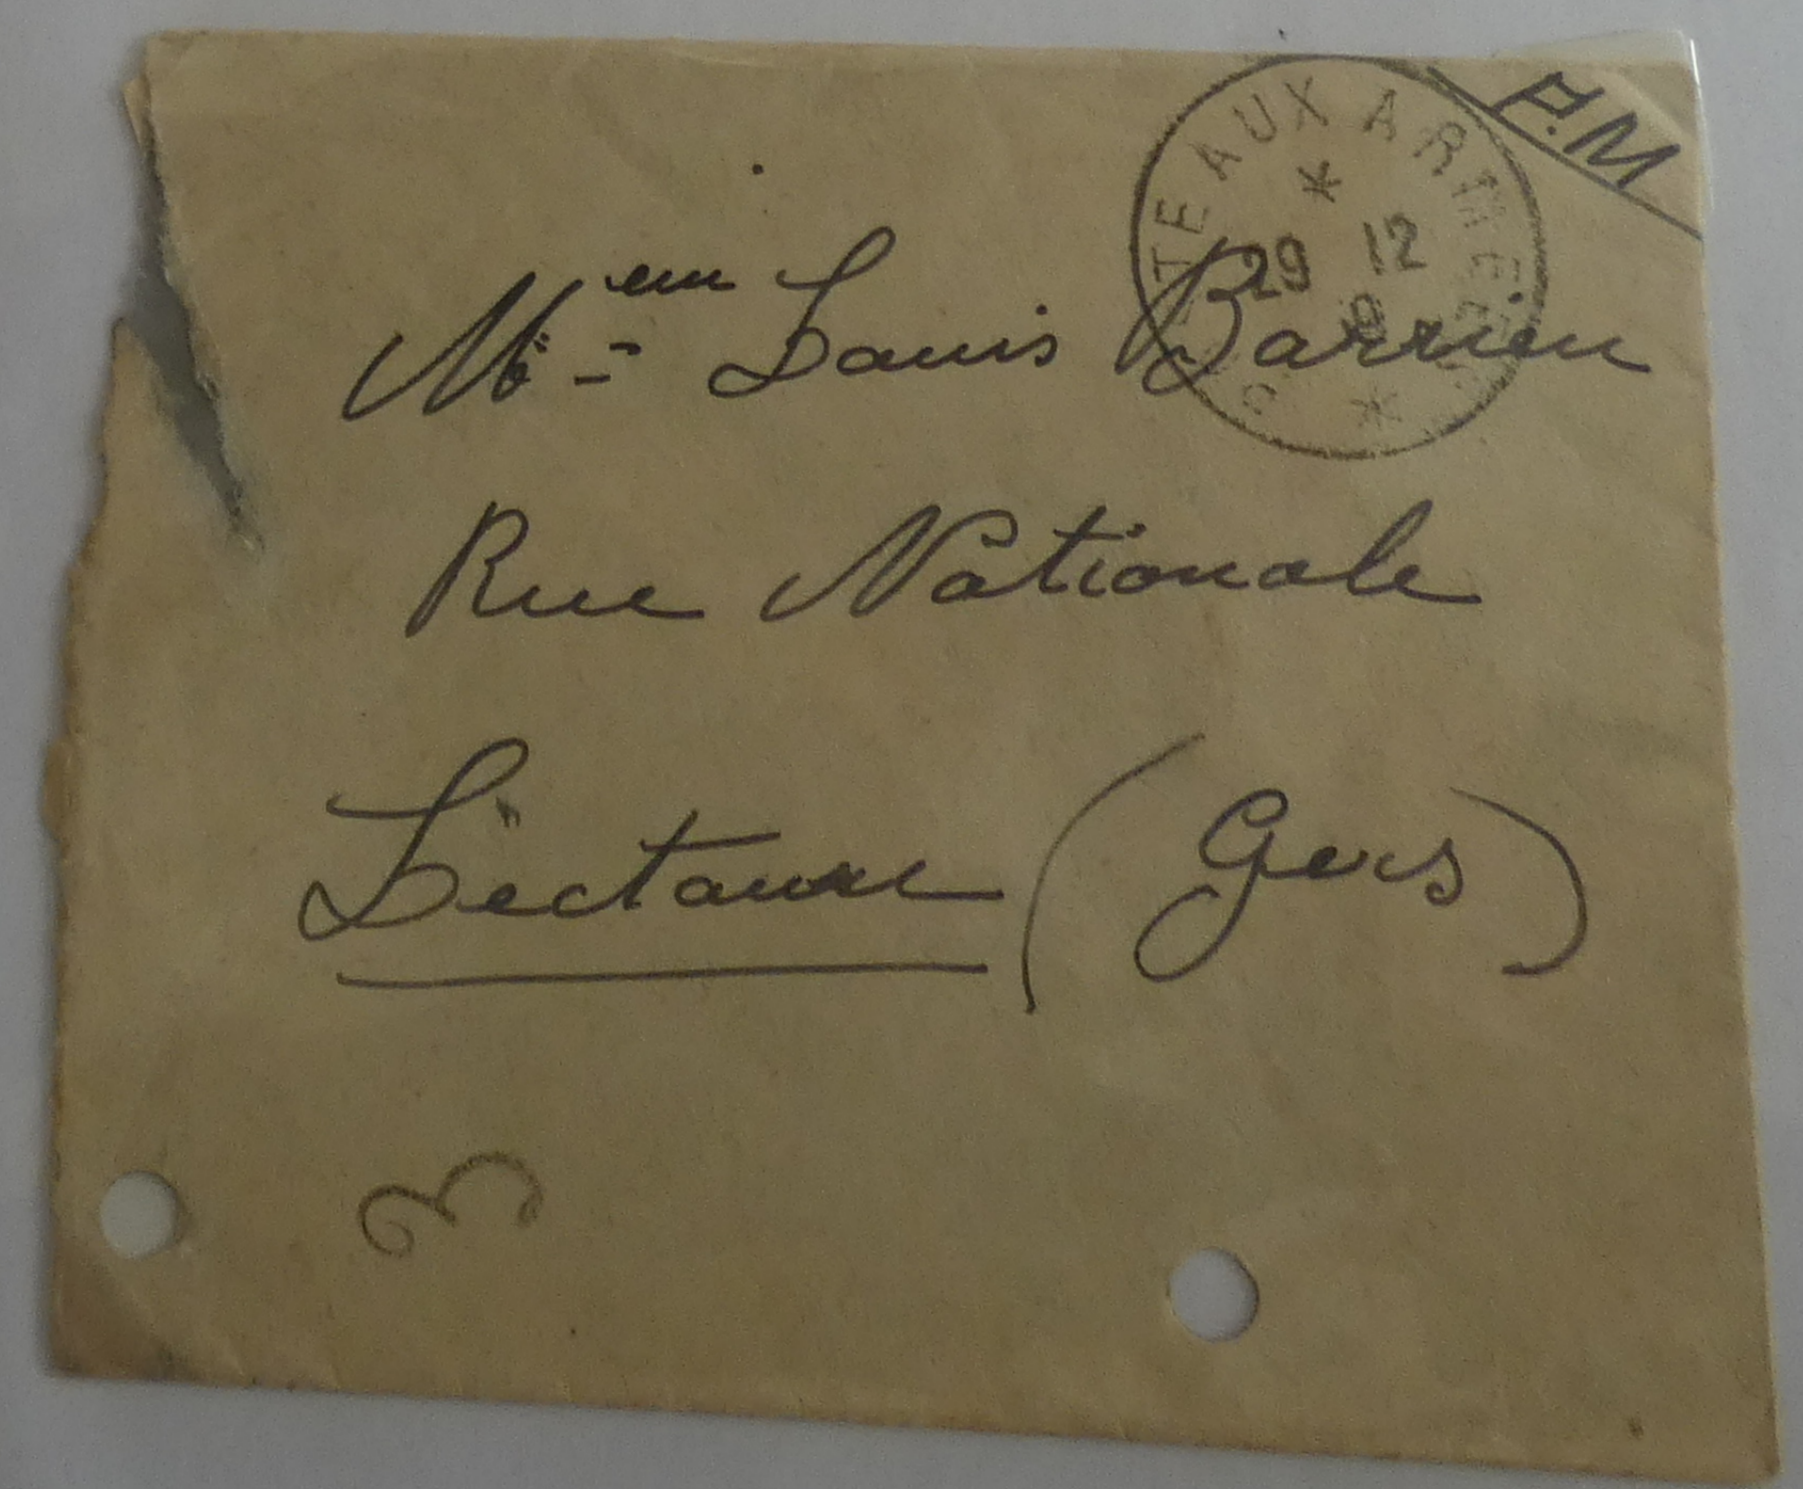 P.M
POSTE AUX ARMEES
29 12
M.em Louis Barrieu
Rue Nationale
Lectoure (Gers)
3